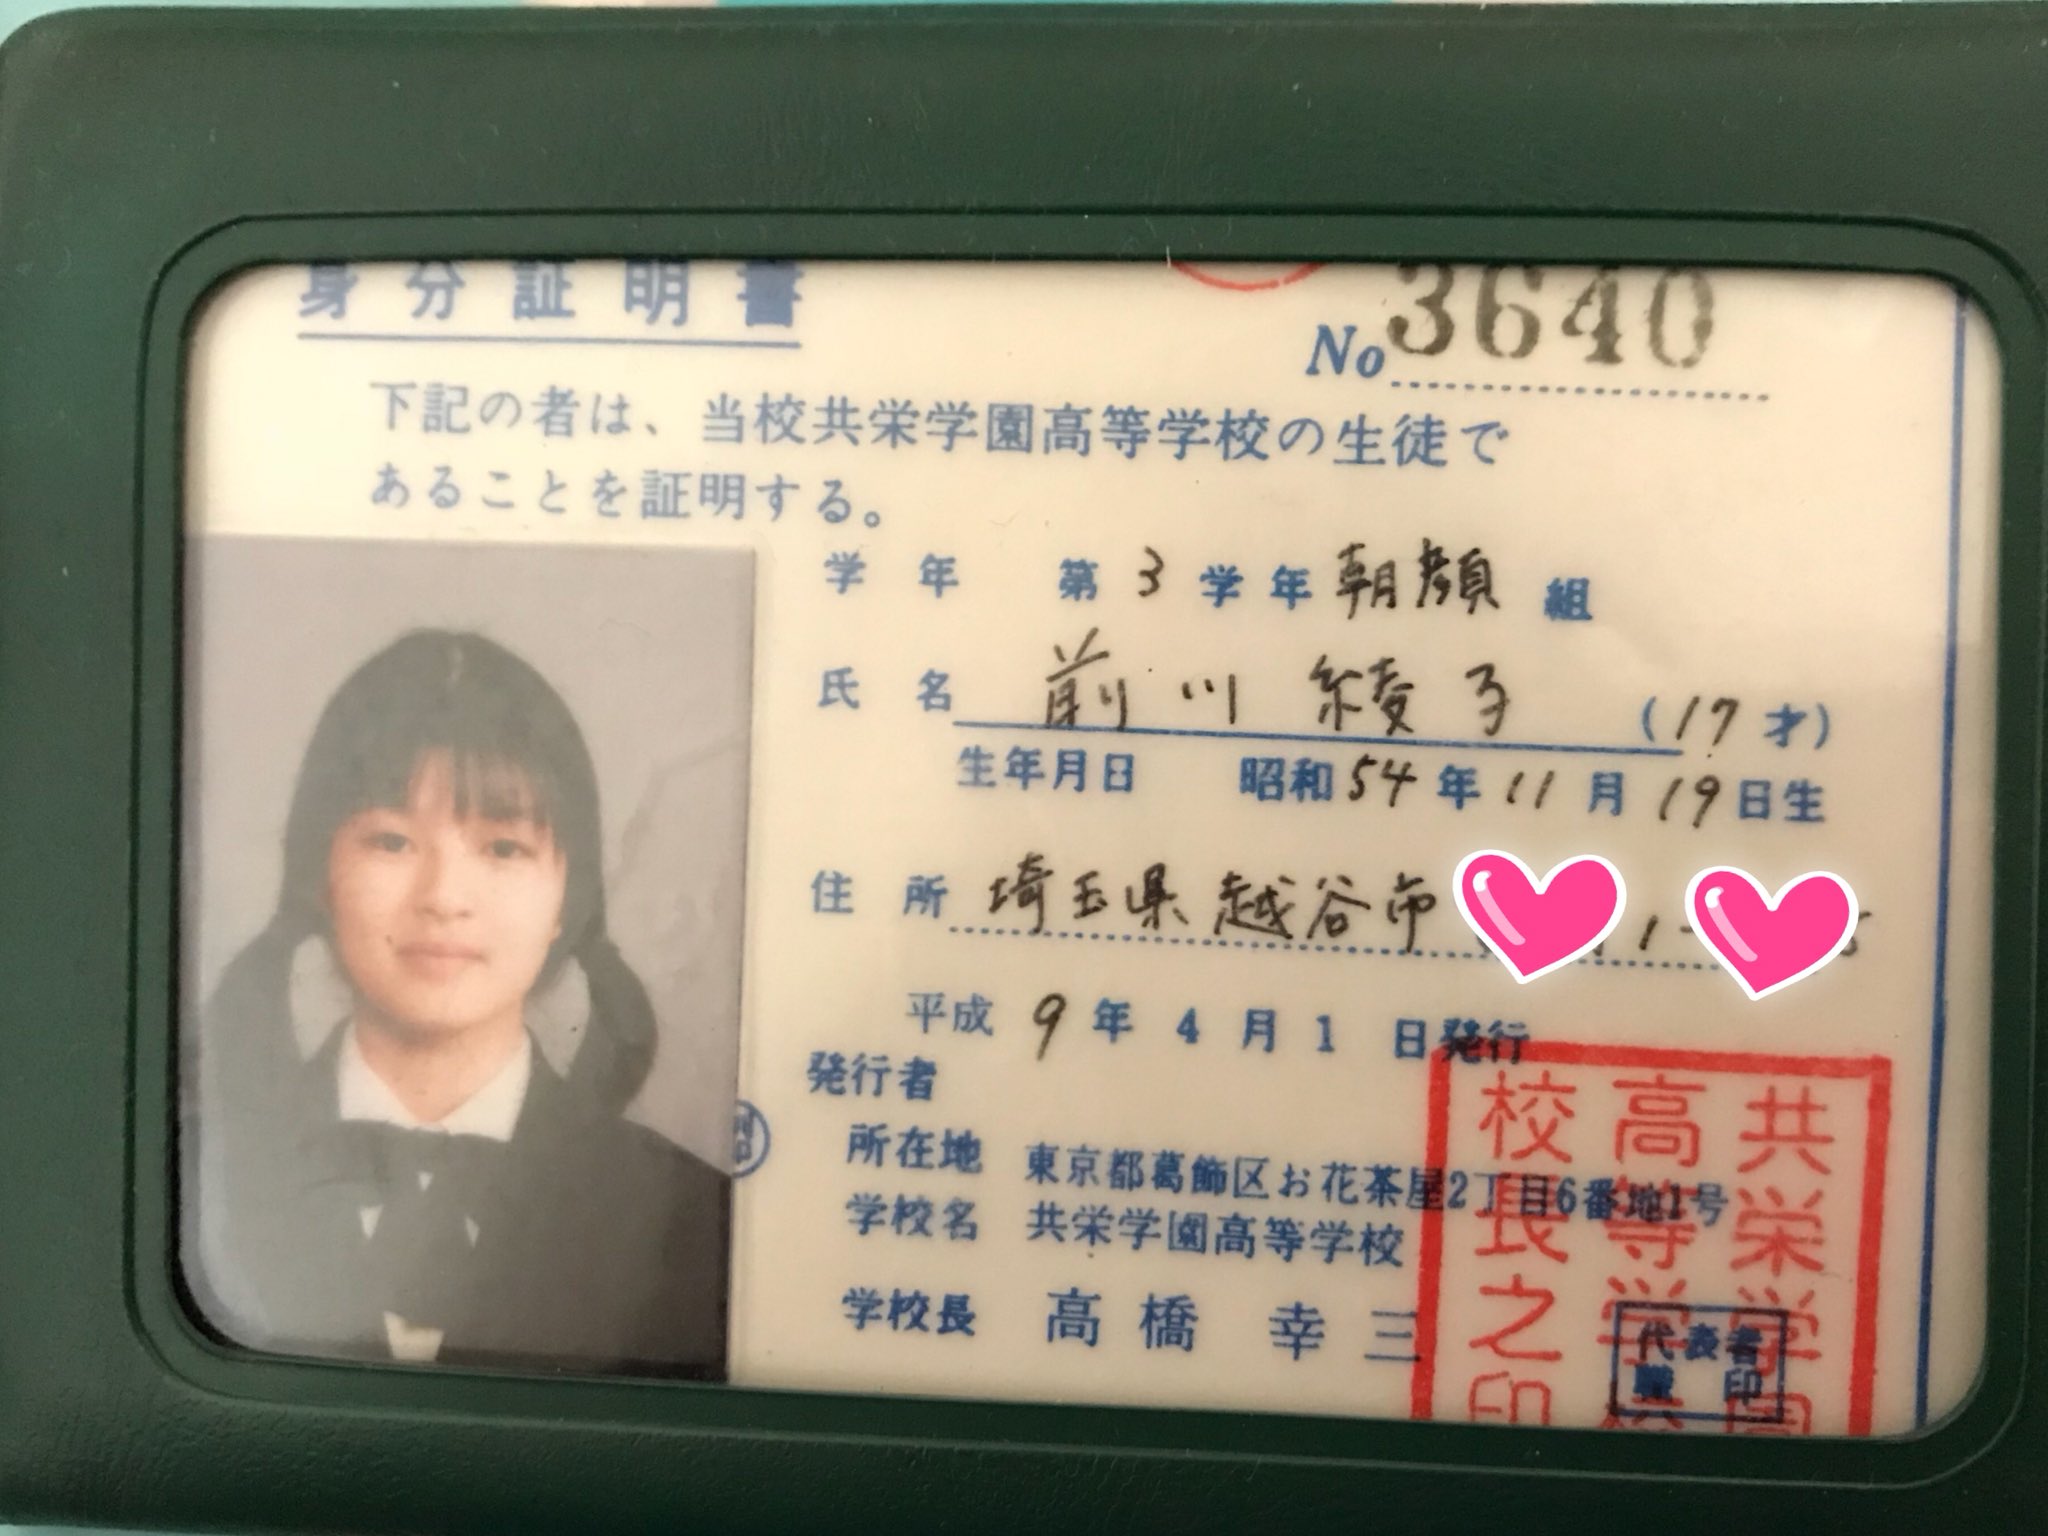 身分証明書
No 3640
下記の者は、当校共栄学園高等学校の生徒で
あることを証明する。
学年 第3学年朝顔組
氏名 前川 綾子 (17才)
生年月日 昭和54年11月19日生
住所 埼玉県越谷市 1
平成9年4月1日発行
発行者
所在地 東京都葛飾区お花茶屋2丁目6番地1号
学校名 共栄学園高等学校
学校長 高橋幸三
共栄学園
高等学校
校長之印
代表者
職印